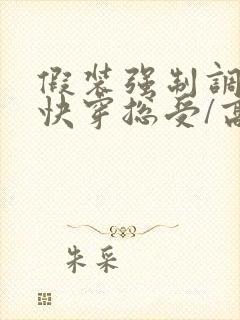 假装强制調
快穿捴受/高
朱采